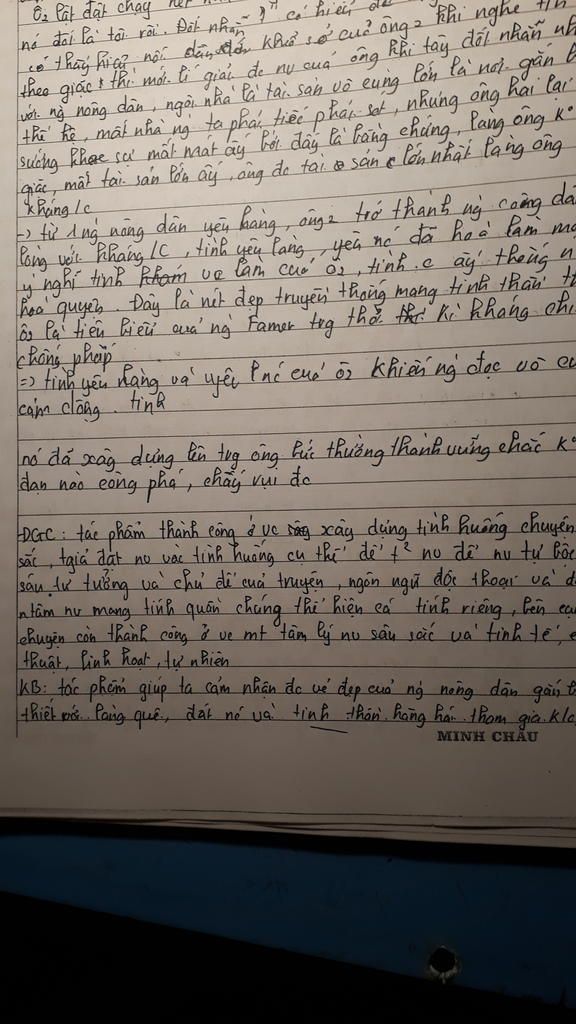 Ô2 lật đật chạy
nó đốt là tôi rồi. Đốt nhẵn có hiểu
có thấy hiểu nỗi khổ sở của ông 2 khi nghe tin
theo giặc thì mới lí giải đc nv của ông khi tây đốt nhẵn nh
với ng nông dân, ngôi nhà là tài sản vô cùng lớn là nơi gắn b
thế hệ, mất nhà ng ta phải tiếc phải sót, nhưng ông hai lại
sướng khoe sự mất mát ấy bởi đấy là bằng chứng, làng ông k°
giặc, mất tài sản lớn ấy, ông đc tài sản lớn nhất làng ông
kháng/c
-> từ 1 ng nông dân yêu làng, ông 2 trở thành ng công dâ
lòng với kháng/C, tình yêu làng, yêu nc đã hoà làm mo
ý nghĩ tình vc làm của Ô2, tình.c ấy thống n
hoà quyện. Đây là nét đẹp truyền thống mang tinh thần t
ô2 là tiêu biểu của ng Famer trg thời kì kháng chi
chống pháp
=> tình yêu làng và yêu nc của ô2 khiến ng đọc vô cu
cảm động. tình
nó đã xây dựng lên trg ông bức thường thành vững chắc k°
đạn nào công phá, chấy vụi đc
-DGC: tác phẩm thành công ở vc xây dựng tình huống chuyện
sắc, tgiả đặt nv vào tình huống cụ thể để t² nv để nv tự bộc
sâu tư tưởng và chủ đề của truyện, ngôn ngữ độc thoại và đ
ntâm nv mang tính quần chúng thể hiện cá tính riêng, bên cạ
chuyện còn thành công ở vc mt tâm lý nv sâu sắc và tinh tế,
thuật, linh hoạt, tự nhiên
KB: tác phẩm giúp ta cảm nhận đc vẻ đẹp của ng nông dân gắn b
thiết với làng quê, đất nc và tinh thần hăng hái tham gia k/c
MINH CHÂU